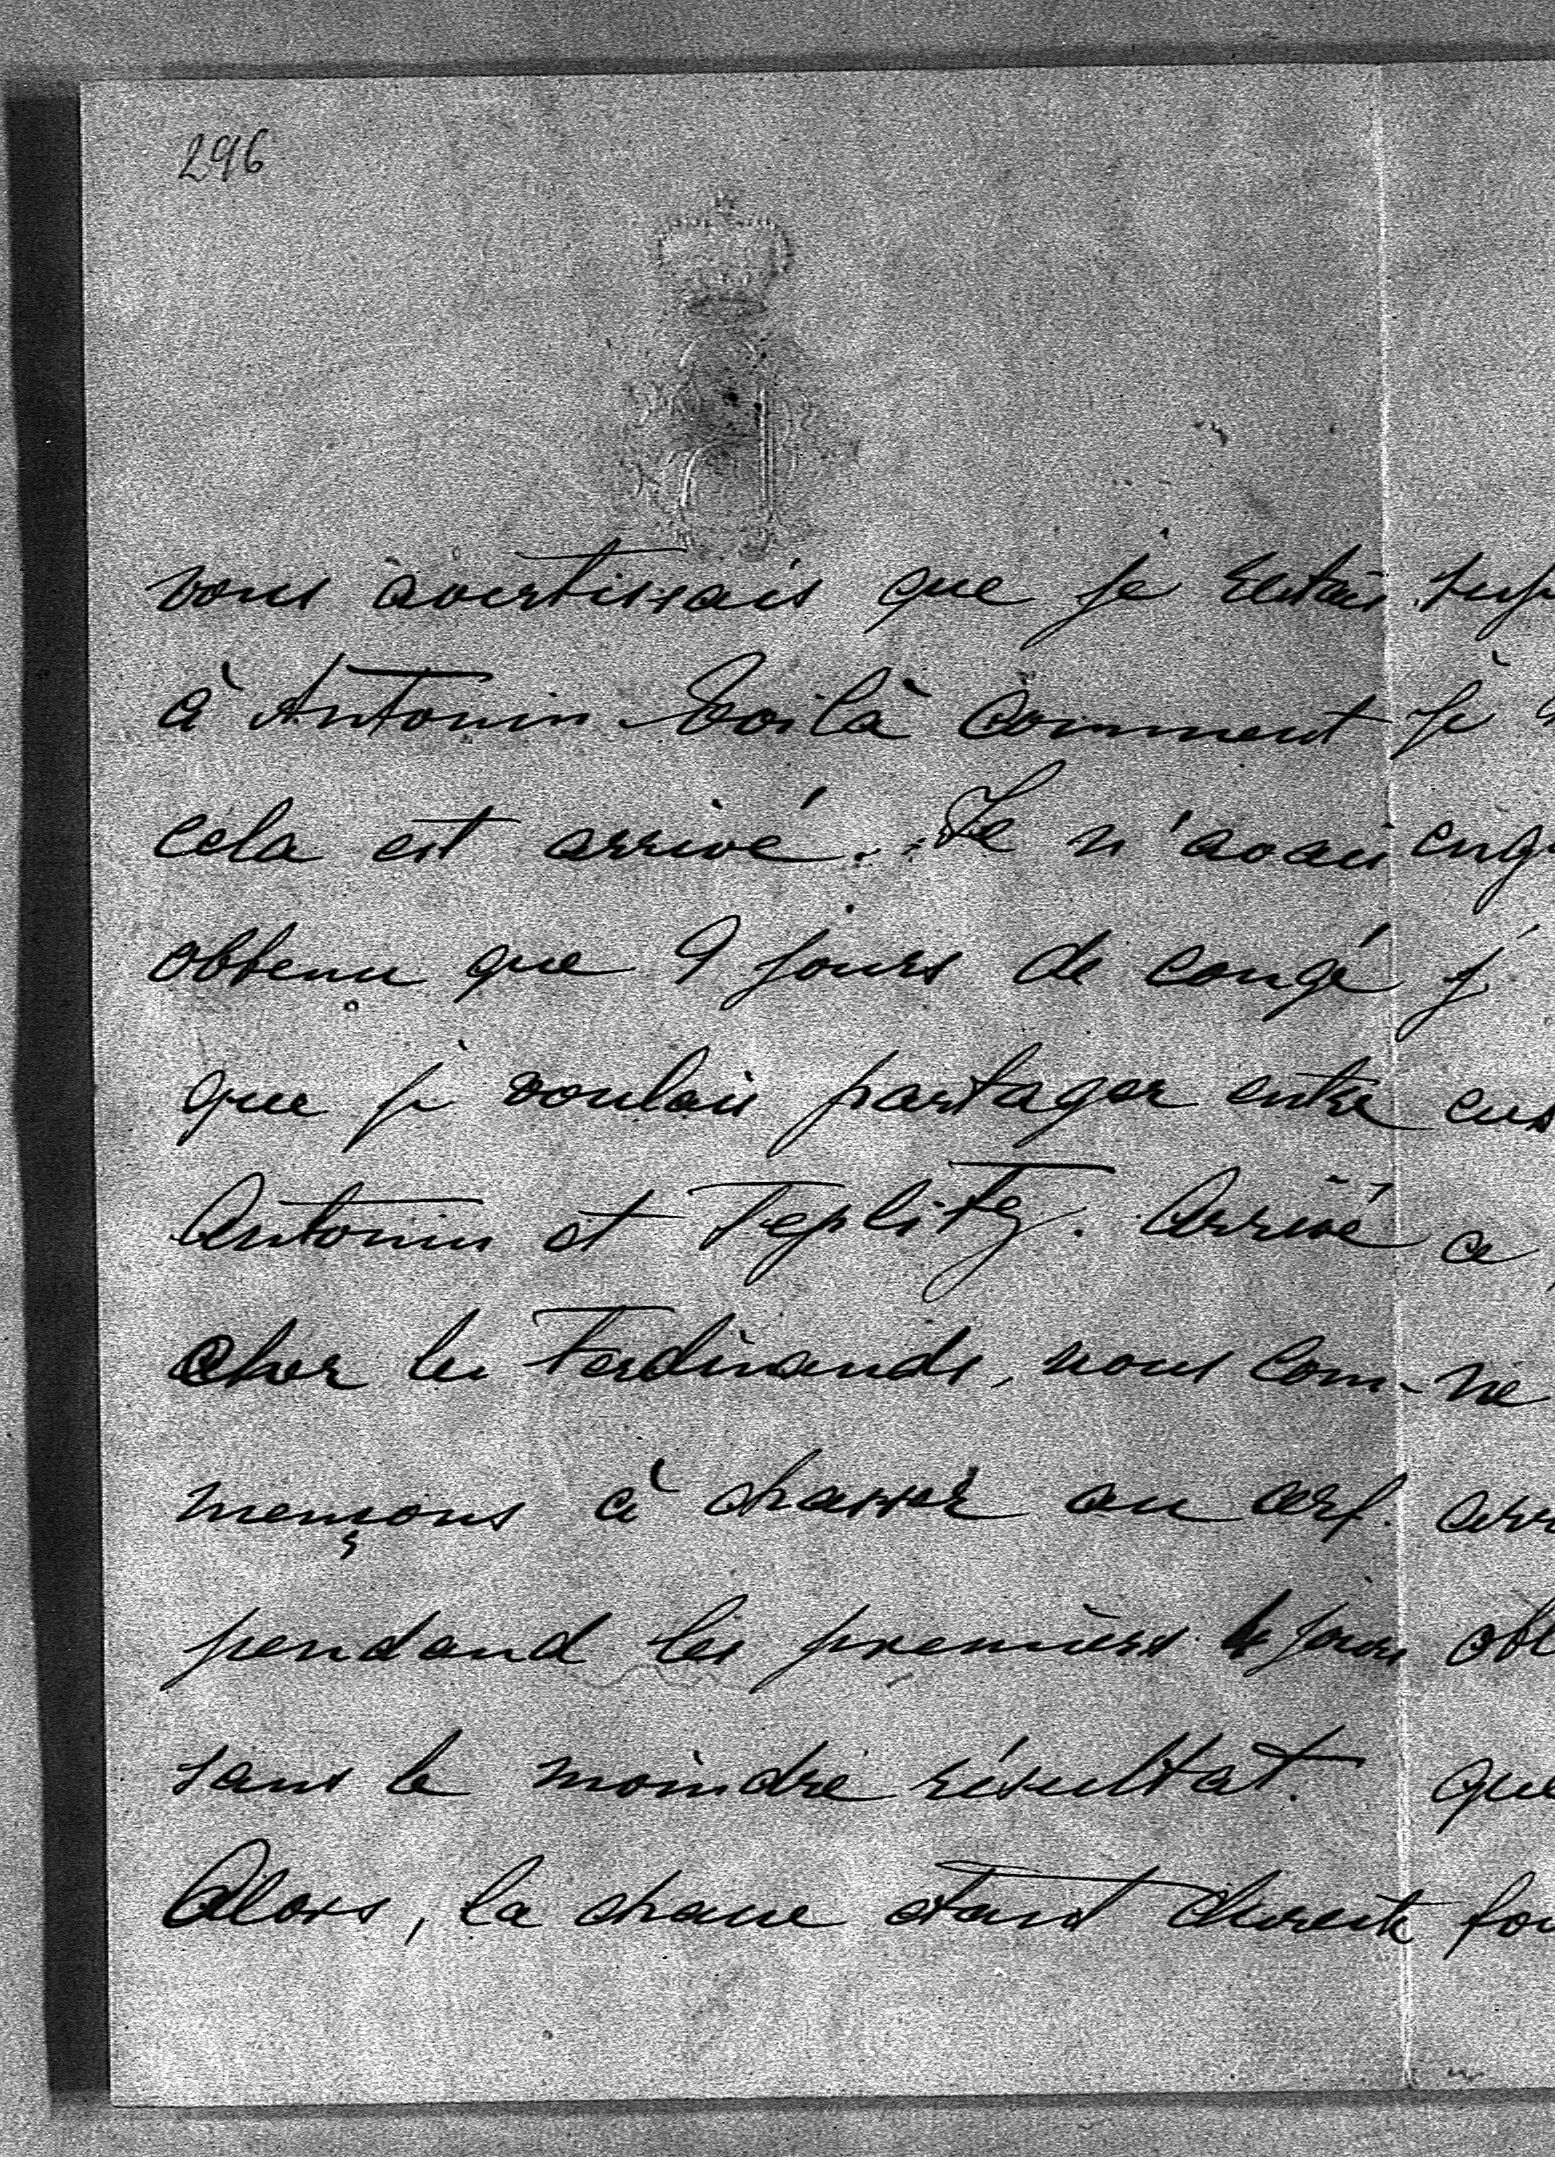 296
vous avertissais que je restais
à Antonin. Voilà comment
cela est arrivé. Je n'avais
obtenu que 9 jours de congé
que je voulais partager entre
Antonin et Teplitz. Arrivé
chez les Ferdinands, nous com-
mençons à chasser au cerf
pendand les premiers 4 jours
sans le moindre résultat.
Alors, la chasse étant
je
j'
a
ne
que